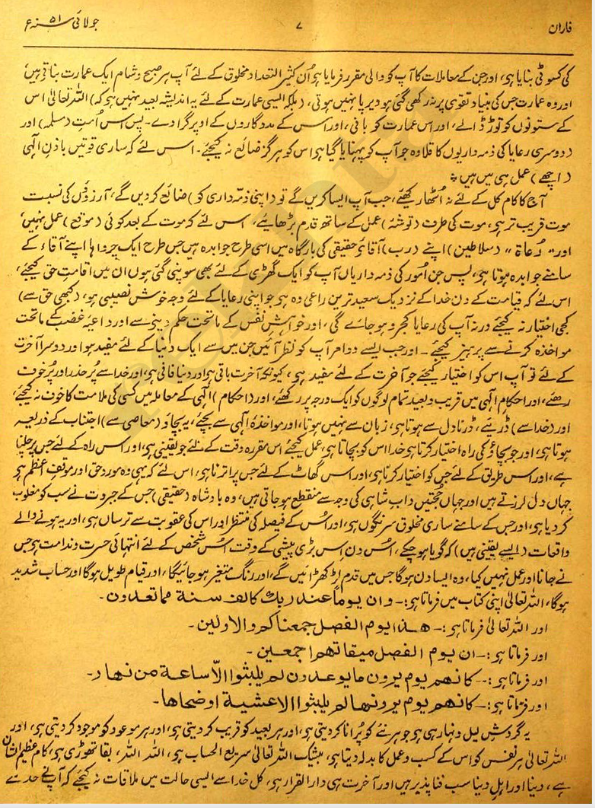 فاران ۷ جولائی سنہ ۵۱ ع
کی کسوٹی بنایا ہو، اور جن کے معاملات کا آپ کو والی مقرر فرمایا ہو اُن کثیر التعداد مخلوق کے لئے آپ ہر صبح و شام ایک عمارت بناتی ہیں
اور وہ عمارت جس کی بنیاد تقویٰ پر نہ رکھی گئی ہو دیر پا نہیں ہوتی، (بلکہ ایسی عمارت کے لئے یہ اندیشہ بعید نہیں ہو کہ) اللہ تعالیٰ اس
کے ستونوں کو توڑ ڈالے، اور اس عمارت کو بانی، اور اس کے مددگاروں کے اوپر گرا دے۔ پس اس اُمتِ (مسلمہ) اور
(دوسری رعایا کی ذمہ داریوں کا قلادہ جو آپ کو پہنایا گیا ہو اس کو ہرگز ضائع نہ کیجئے۔ اس لئے کہ ساری قوتیں باذنِ الٰہی
(اچھے) عمل ہی میں ہیں۔
آج کا کام کل کے لئے نہ اُٹھا رکھئے، جب آپ ایسا کریں گے تو (اپنی ذمہ داری کو) ضائع کر دیں گے، آرزؤں کی نسبت
موت قریب تر ہو، موت کی طرف (توشۂ) عمل کے ساتھ قدم بڑھائیے، اس لئے کہ موت کے بعد کوئی (موقع) عمل نہیں
اور "رُعاۃ" (سلاطین) اپنے (رب) آقائے حقیقی کی بارگاہ میں اسی طرح جوابدہ ہیں جس طرح ایک چرواہا اپنے آقا، کے
سامنے جوابدہ ہوتا ہو، پس جن اُمور کی ذمہ داریاں آپ کو ایک گھڑی کے لئے بھی سونپی گئی ہوں ان میں اقامتِ حق کیجئے،
اس لئے کہ قیامت کے دن خدا کے نزدیک سعید ترین راعی وہ ہو جو اپنی رعایا کے لئے وجہ خوش نصیبی ہو، (کبھی حق سے)
کجی اختیار نہ کیجئے ورنہ آپ کی رعایا کجرو ہو جائے گی، اور خواہشِ نفس کے ماتحت حکم دینے سے اور داعیۂ غضب کے ماتحت
مواخذہ کرنے سے پرہیز کیجئے۔ اور جب ایسے دو امر آپ کو نظر آئیں جن میں سے ایک دُنیا کے لئے مفید ہو اور دوسرا آخرت
کے لئے تو آپ اس کو اختیار کیجئے جو آخرت کے لئے مفید ہو، کیونکہ آخرت باقی ہو اور دنیا فانی ہو، اور خدا سے پُر حذر اور پُر خوف
رہئے، اور احکام الٰہی میں قریب و بعید تمام لوگوں کو ایک درجہ پر رکھئے، اور (احکام) الٰہی کے معاملہ میں کسی کی ملامت کا خوف نہ کیجئے،
اور (خدا سے) ڈریئے، ڈرنا دل سے ہوتا ہو، زبان سے نہیں ہوتا، اور مواخذۂ الٰہی سے بچئے، بچاؤ (معاصی سے) اجتناب کے ذریعہ
ہوتا ہو، اور جو بچاؤ کی راہ اختیار کرتا ہو خدا اس کو بچاتا ہو، عمل کیجئے اُس مقررہ وقت کے لئے جو یقینی ہو، اور اس راہ کے لئے جس پر چلنا
ہے، اور اس طریق کے لئے جس کو اختیار کرنا ہو، اور اس گھاٹ کے لئے جس پر اترنا ہو، اس لئے کہ یہی وہ موردِ حق اور موقفِ عظیم ہو
جہاں دل لرزتے ہیں اور جہاں حجتیں دابِ شاہی کی وجہ سے منقطع ہو جاتی ہیں، وہ بادشاہ (حقیقی) جس کے جبروت نے سب کو مغلوب
کر دیا ہو، اور جس کے سامنے ساری مخلوق سرنگوں ہو، اور اُس کے فیصلہ کی منتظر اور اس کی عقوبت سے ترساں ہو، اور یہ ہونے والے
واقعات (ایسے یقینی ہیں) کہ گویا ہو چکے، اُس دن اس بڑی پیشی کے وقت اُس شخص کے لئے انتہائی حسرت و ندامت ہو جس
نے جانا اور عمل نہیں کیا، وہ ایسا دن ہوگا جس میں قدم لڑکھڑائیں گے، اور رنگ متغیر ہو جائیگا، اور قیام طویل ہوگا اور حساب شدید
ہوگا، اللہ تعالیٰ اپنی کتاب میں فرماتا ہو:۔ وان یوماً عند ربک کالف سنة مما تعدون۔
اور اللہ تعالیٰ فرماتا ہو:۔ ھذا یوم الفصل جمعناکم والاولین۔
اور فرماتا ہو:۔ ان یوم الفصل میقاتھم اجمعین۔
اور فرماتا ہو:۔ کانھم یوم یرون ما یوعدون لم یلبثوا الا ساعة من نھار۔
اور فرماتا ہو:۔ کانھم یوم یرونھا لم یلبثوا الا عشیة او ضحاھا۔
یہ گردش لیل و نہار ہی ہو جو ہر نئے کو پُرانا کر دیتی ہو، اور ہر بعید کو قریب کر دیتی ہو، اور ہر موعود کو موجود کر دیتی ہو، اور
اللہ تعالیٰ ہر نفس کو اس کے کسب و عمل کا بدلہ دیتا ہو، بیشک اللہ تعالیٰ سریع الحساب ہو، اللہ اللہ، بقا تھوڑی ہو، کام عظیم الشان
ہے، دینا اور اہلِ دینا سب فنا پذیر ہیں اور آخرت ہی دار القرار ہو، کل خدا سے ایسی حالت میں ملاقات نہ کیجئے کہ آپ نے حد سے